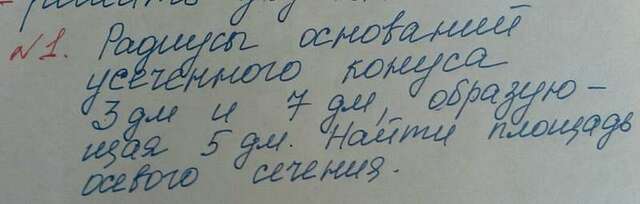 №1. Радиусы оснований
усеченного конуса
3 дм и 7 дм, образую-
щая 5 дм. Найти площадь
осевого сечения.